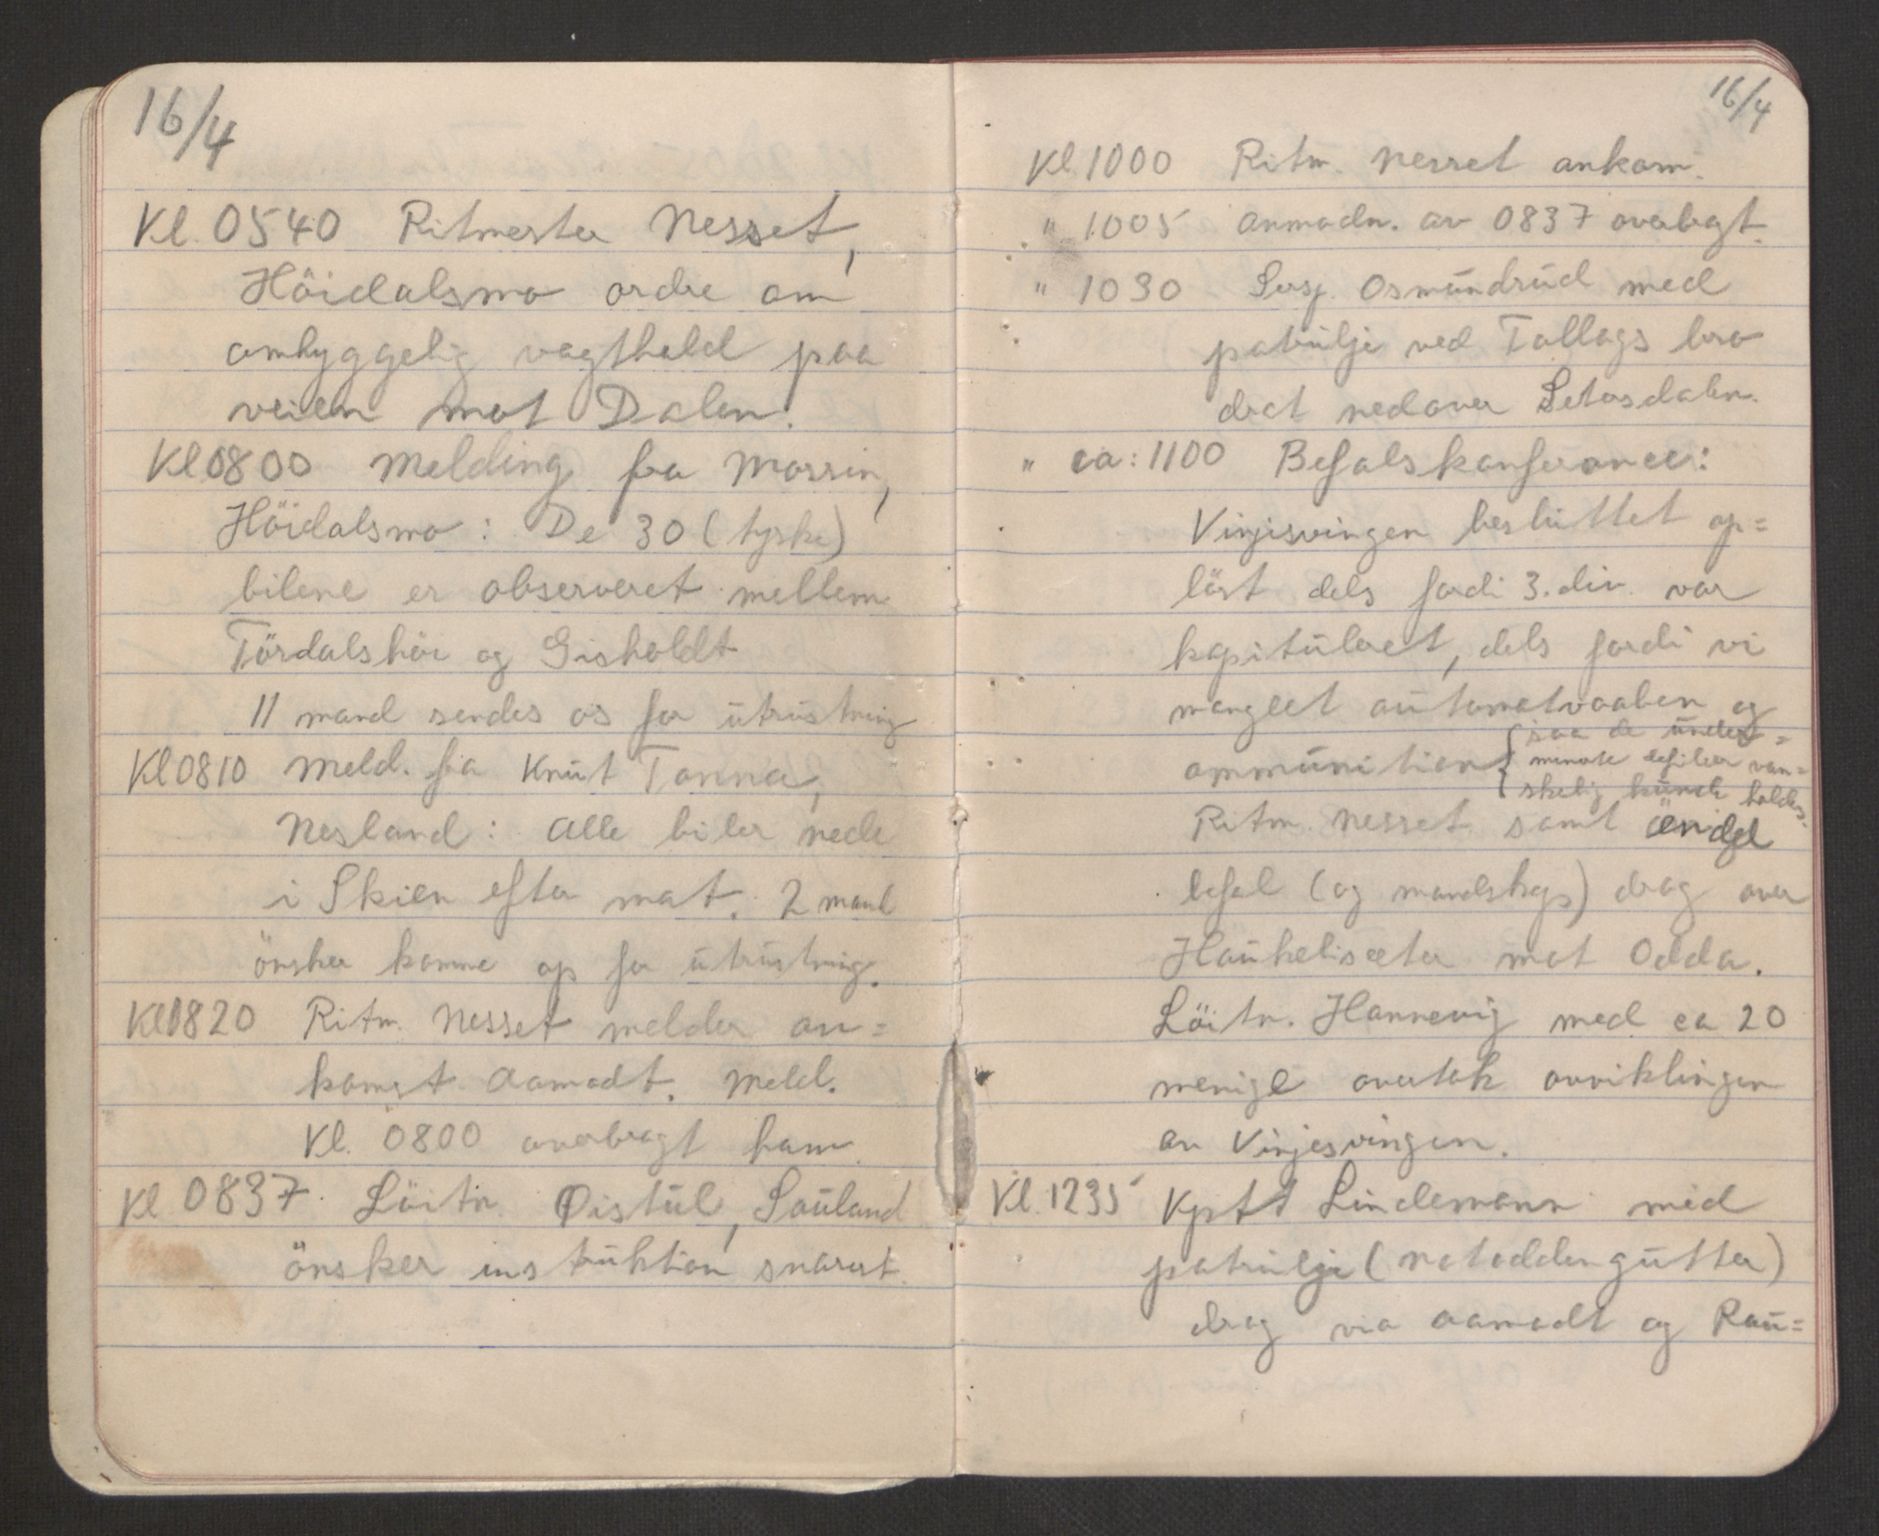 16/4
Kl. 0540 Ritmester Nesset,
Höidalsmo ordre om
omhyggelig vagthold paa
veien mot Dalen.
Kl 0800 Melding fra Mossin,
Höidalsmo: De 30 (tyske)
bilene er observeret mellem
Tördalshöi og Gisholdt
11 mand sendes os for utrustning
Kl 0810 Meld. fra Knut Tonna,
Nesland: Alle biler nede
i Skien efter mat. 2 mand
önsker komme op for utrustning.
Kl 0820 Ritm. Nesset melder an=
komst Aamodt. Meld.
Kl. 0800 overbragt ham.
Kl 0837. Löitn. Øistul, Sauland
önsker instruktion snarest.
16/4
Kl. 1000 Ritm. Nesset ankom.
" 1005 Anmodn. av 0837 overbragt.
" 1030 Sersj. Osmundrud med
patrulje ved Tallags bro
drat nedover Setesdalen.
" ca: 1100 Befalskonferance:
Vinjesvingen besluttet op=
löst dels fordi 3. div. var
kapituleret, dels fordi vi
manglet automatvaaben og
ammunition { saa de under=
minerte defileer van=
skelig kunde holdes.
Ritm. Nesset samt endel
befal (og mandskap) drog over
Haukeliseter mot Odda.
Löitn. Hannevig med ca 20
menige overtok avviklingen
av Vinjesvingen.
Kl. 1235 Kptt Lindemann med
patrulje (Notoddengutter)
drog via Aamodt og Rau=